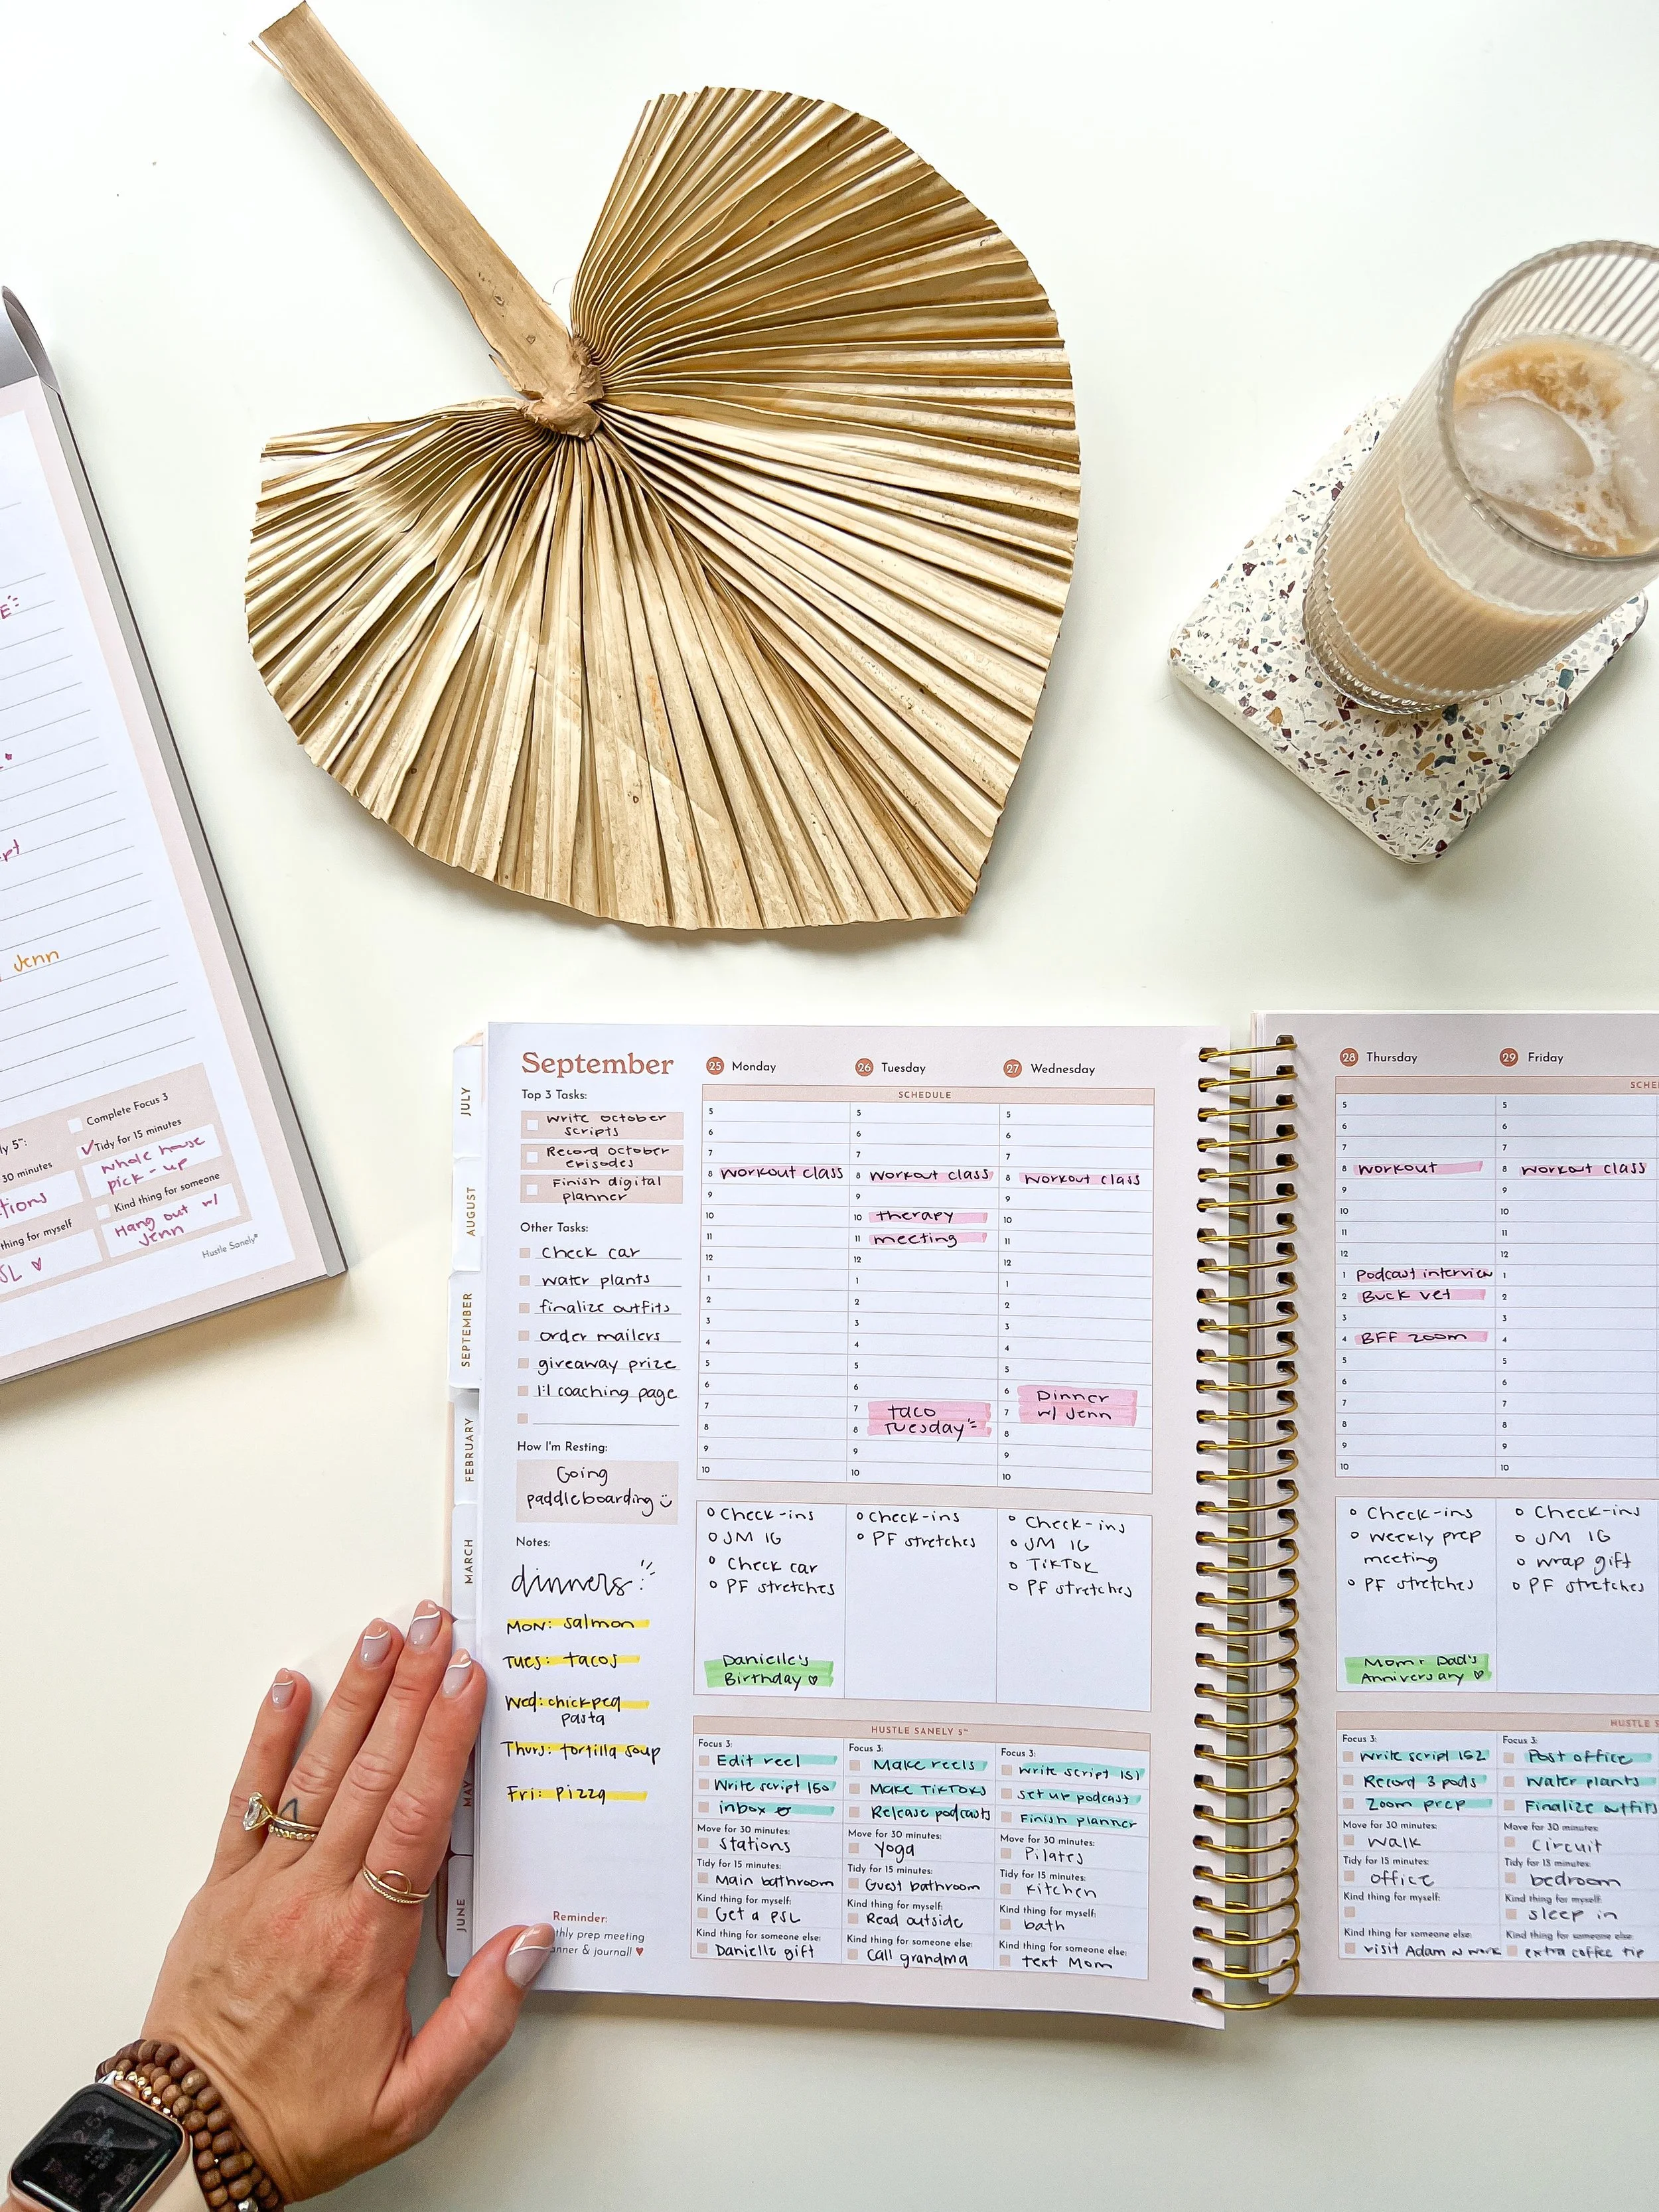 Jenn
Complete Focus 3
Tidy for 15 minutes
whole house
pick-up
30 minutes
Kind thing for someone
Hang out w/
Jenn
thing for myself
Hustle Sanely®
JULY
AUGUST
SEPTEMBER
FEBRUARY
MARCH
MAY
JUNE
September
Top 3 Tasks:
write october
scripts
Record october
episodes
Finish digital
planner
Other Tasks:
check car
water plants
finalize outfits
order mailers
giveaway prize
1:1 coaching page
How I'm Resting:
Going
paddleboarding
Notes:
dinners
MON: salmon
TUES: tacos
Wed: chickpea
pasta
Thurs: tortilla soup
Fri: pizza
Reminder:
prep meeting
& journal! ♥
25 Monday
26 Tuesday
27 Wednesday
SCHEDULE
5
6
7
8 workout class
9
10
11
12
1
2
3
4
5
6
7
8
9
10
5
6
7
8 workout class
9
10 therapy
11 meeting
12
1
2
3
4
5
6
7 taco
8 Tuesday
9
10
5
6
7
8 workout class
9
10
11
12
1
2
3
4
5
6 Dinner
7 w/ Jenn
8
9
10
Check-ins
JM IG
Check car
PF stretches
Danielle's
Birthday ♡
Check-ins
PF stretches
Check-ins
JM IG
TikTok
PF stretches
HUSTLE SANELY 5™
Focus 3:
Edit reel
Write script 150
inbox 0
Move for 30 minutes:
stations
Tidy for 15 minutes:
Main bathroom
Kind thing for myself:
Get a PSL
Kind thing for someone else:
Danielle gift
Focus 3:
Make reels
Make TikToks
Release podcasts
Move for 30 minutes:
yoga
Tidy for 15 minutes:
Guest bathroom
Kind thing for myself:
Read outside
Kind thing for someone else:
call grandma
Focus 3:
write script 151
set up podcast
Finish planner
Move for 30 minutes:
Pilates
Tidy for 15 minutes:
kitchen
Kind thing for myself:
bath
Kind thing for someone else:
text Mom
28 Thursday
29 Friday
5
6
7
8 workout
9
10
11
12
1 Podcast interview
2 Buck vet
3
4 BFF zoom
5
6
7
8
9
10
5
6
7
8 workout class
9
10
11
12
1
2
3
4
5
6
7
8
9
10
Check-ins
weekly prep
meeting
PF stretches
Mom + Dad's
Anniversary ♡
Check-ins
JM IG
wrap gift
PF stretches
Focus 3:
write script 152
Record 3 pods
Zoom prep
Move for 30 minutes:
walk
Tidy for 15 minutes:
office
Kind thing for myself:
Kind thing for someone else:
visit Adam @ work
Focus 3:
Post office
water plants
Finalize outfits
Move for 30 minutes:
circuit
Tidy for 15 minutes:
bedroom
Kind thing for myself:
sleep in
Kind thing for someone else:
extra coffee tip